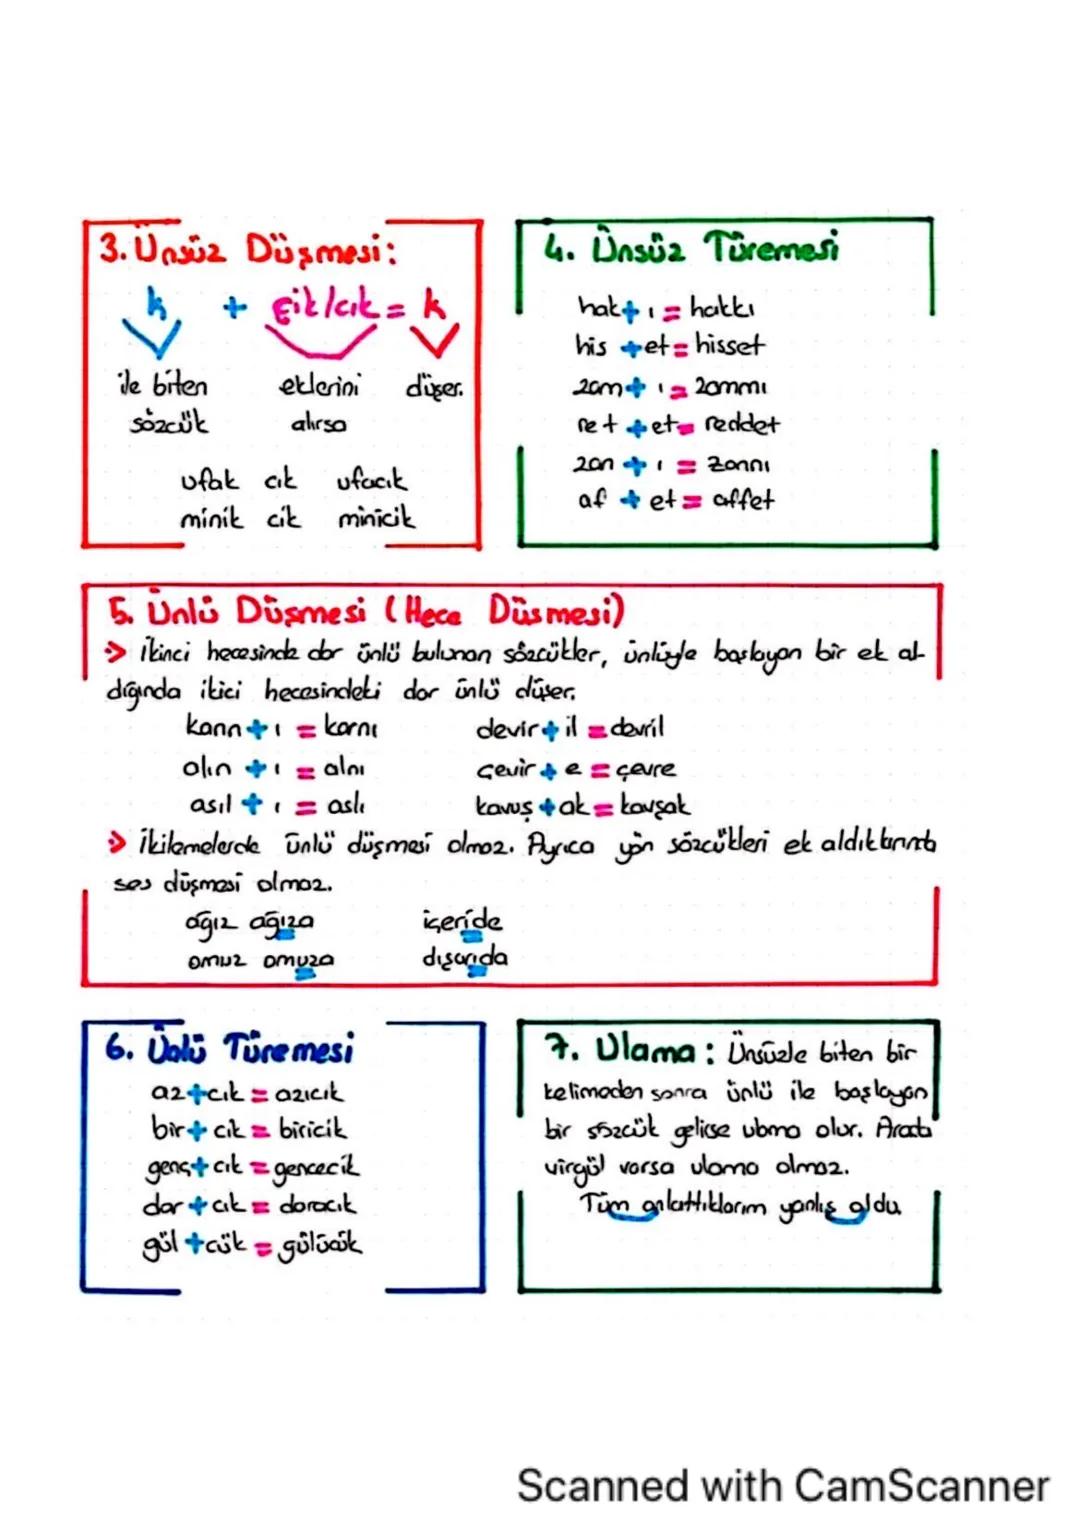 3. Ünsüz Düşmesi:
k + cik/cık = k
ile biten eklerini düşer.
sözcük alırsa
ufak cık ufacık
minik cik minicik
4. Ünsüz Türemesi
hak + ı = hakkı
his + et = hisset
zam + ı = zammı
ret + et = reddet
zan + ı = zannı
af + et = affet
5. Ünlü Düşmesi (Hece Düşmesi)
İkinci hecesinde dar ünlü bulunan sözcükler, ünlüyle başlayan bir ek al-
dığında ikici hecesindeki dar ünlü düşer.
karın + ı = karnı devir + il = devril
alın + ı = alnı çevir + e = çevre
asıl + ı = aslı kavuş + ak = kavşak
İkilemelerde ünlü düşmesi olmaz. Ayrıca yön sözcükleri ek aldıklarında
ses düşmesi olmaz.
ağız ağıza içeride
omuz omuza dışarıda
6. Ünlü Türemesi
az + cık = azıcık
bir + cik = biricik
genç + cik = gencecik
dar + cık = daracık
gül + cük = gülücük
7. Ulama: Ünsüzle biten bir
kelimeden sonra ünlü ile başlayan
bir sözcük gelirse ulama olur. Arada
virgül varsa ulama olmaz.
Tüm anlattıklarım yanlış oldu.
Scanned with CamScanner